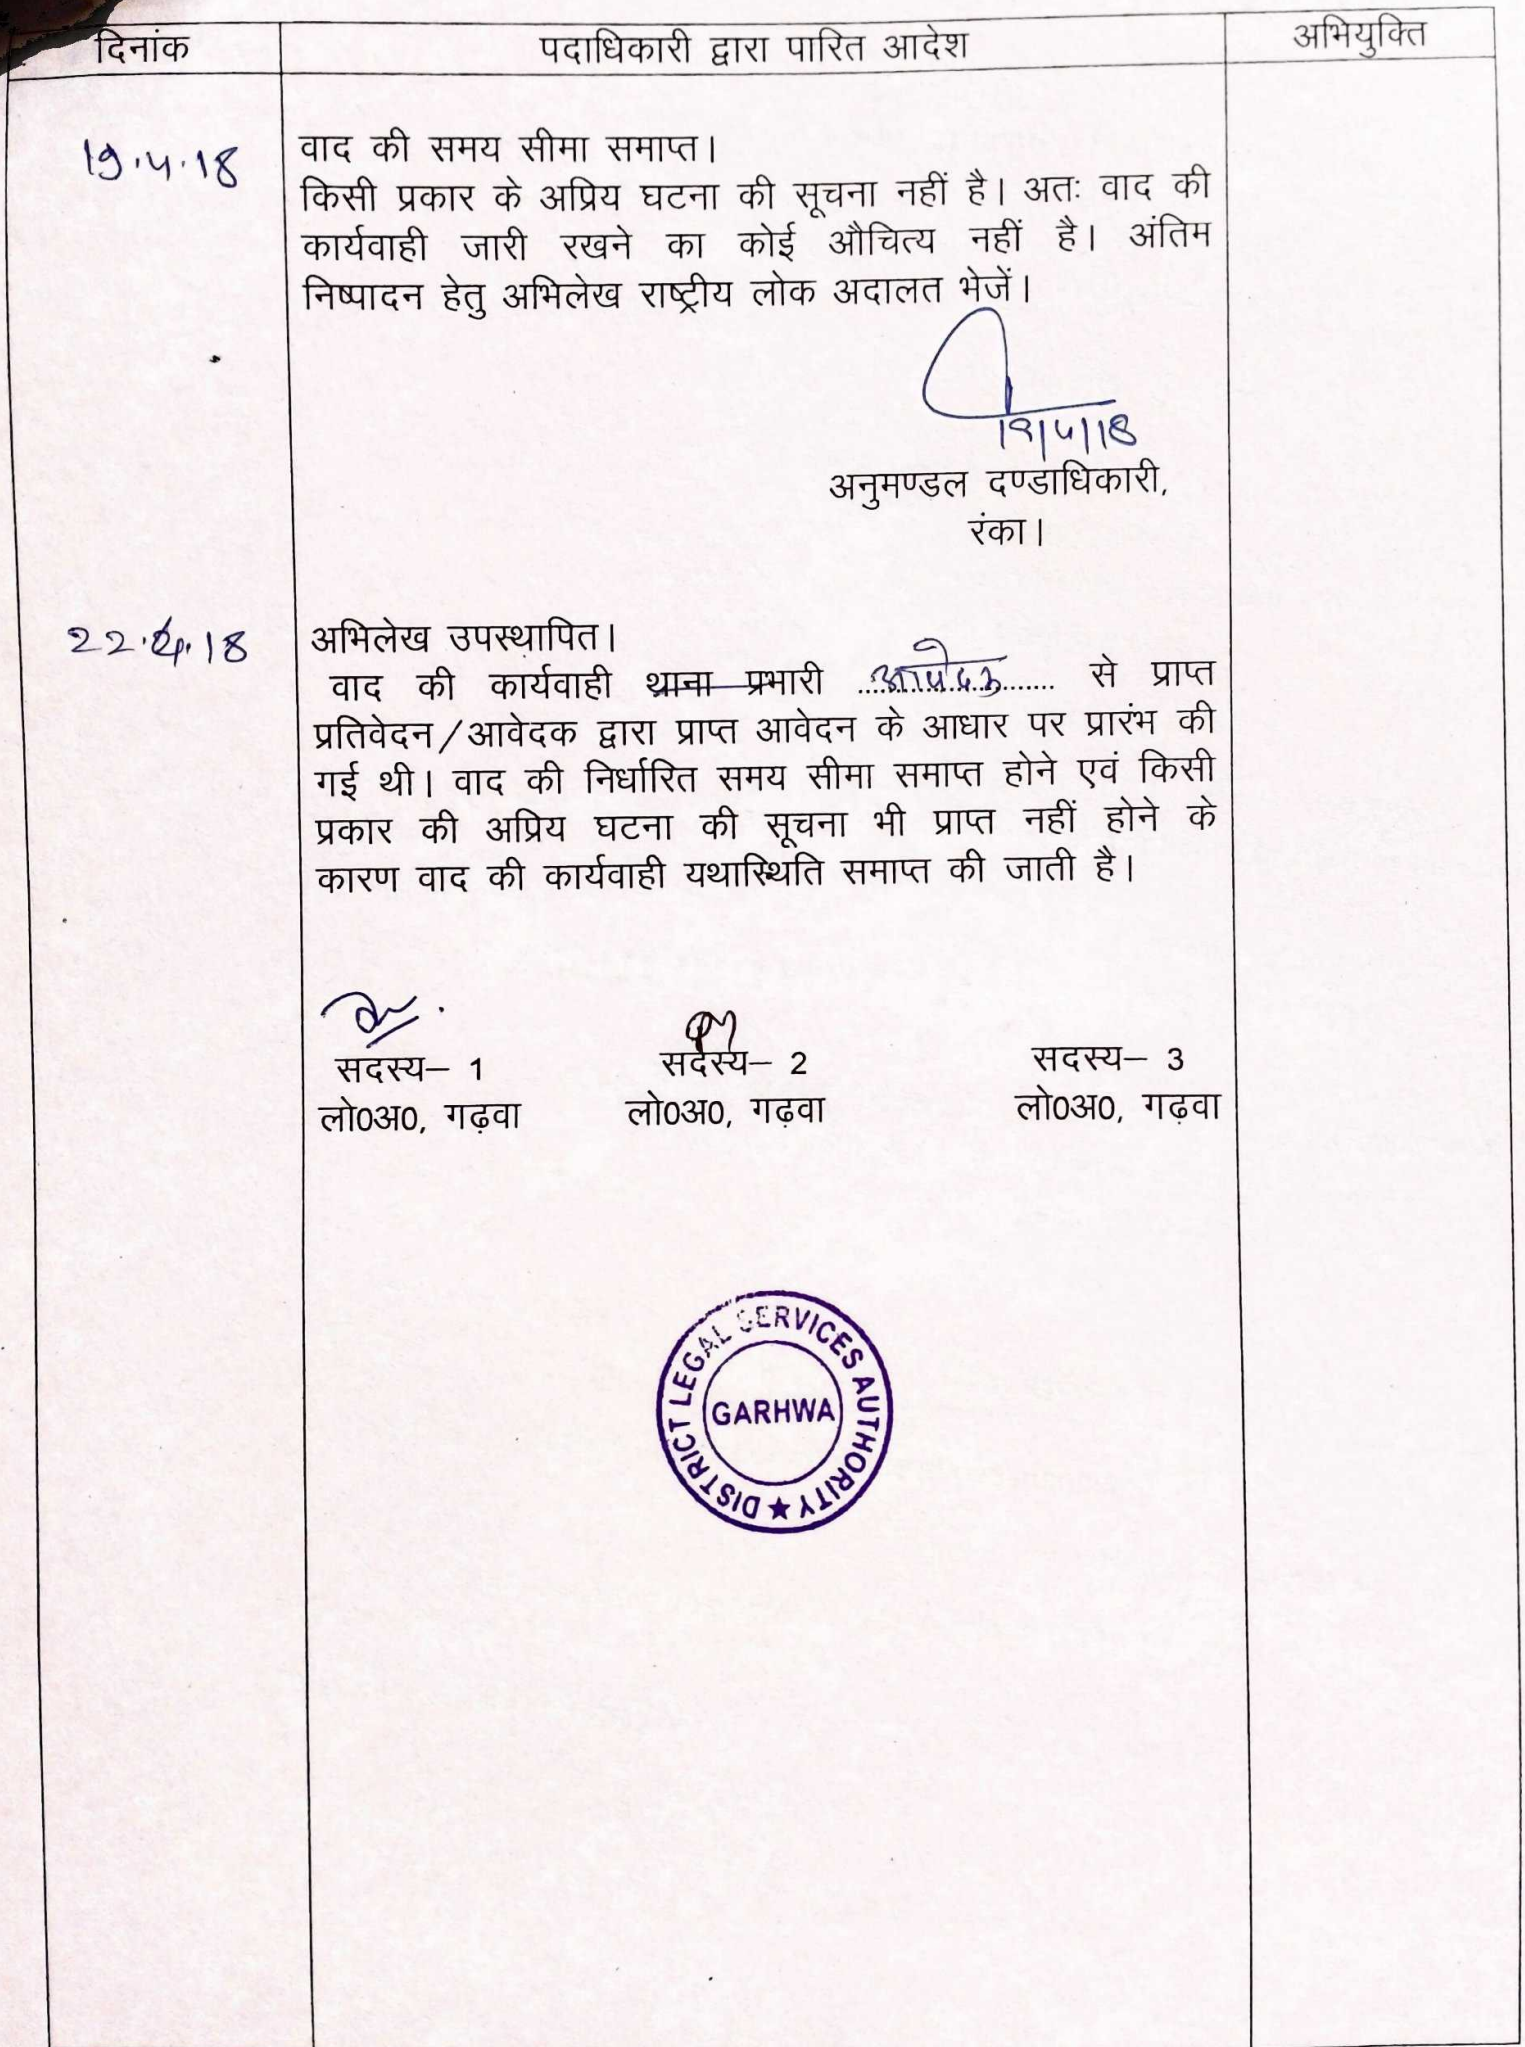 दिनांक पदाधिकारी द्वारा पारित आदेश अभियुक्ति
19.4.18 वाद की समय सीमा समाप्त।
किसी प्रकार के अप्रिय घटना की सूचना नहीं है। अतः वाद की
कार्यवाही जारी रखने का कोई औचित्य नहीं है। अंतिम
निष्पादन हेतु अभिलेख राष्ट्रीय लोक अदालत भेजें।
19/4/18
अनुमण्डल दण्डाधिकारी,
रंका।
22.4.18 अभिलेख उपस्थापित।
वाद की कार्यवाही थाना प्रभारी आवेदक से प्राप्त
प्रतिवेदन/आवेदक द्वारा प्राप्त आवेदन के आधार पर प्रारंभ की
गई थी। वाद की निर्धारित समय सीमा समाप्त होने एवं किसी
प्रकार की अप्रिय घटना की सूचना भी प्राप्त नहीं होने के
कारण वाद की कार्यवाही यथास्थिति समाप्त की जाती है।
सदस्य– 1 सदस्य– 2 सदस्य– 3
लो0अ0, गढ़वा लो0अ0, गढ़वा लो0अ0, गढ़वा
DISTRICT LEGAL SERVICES AUTHORITY
GARHWA